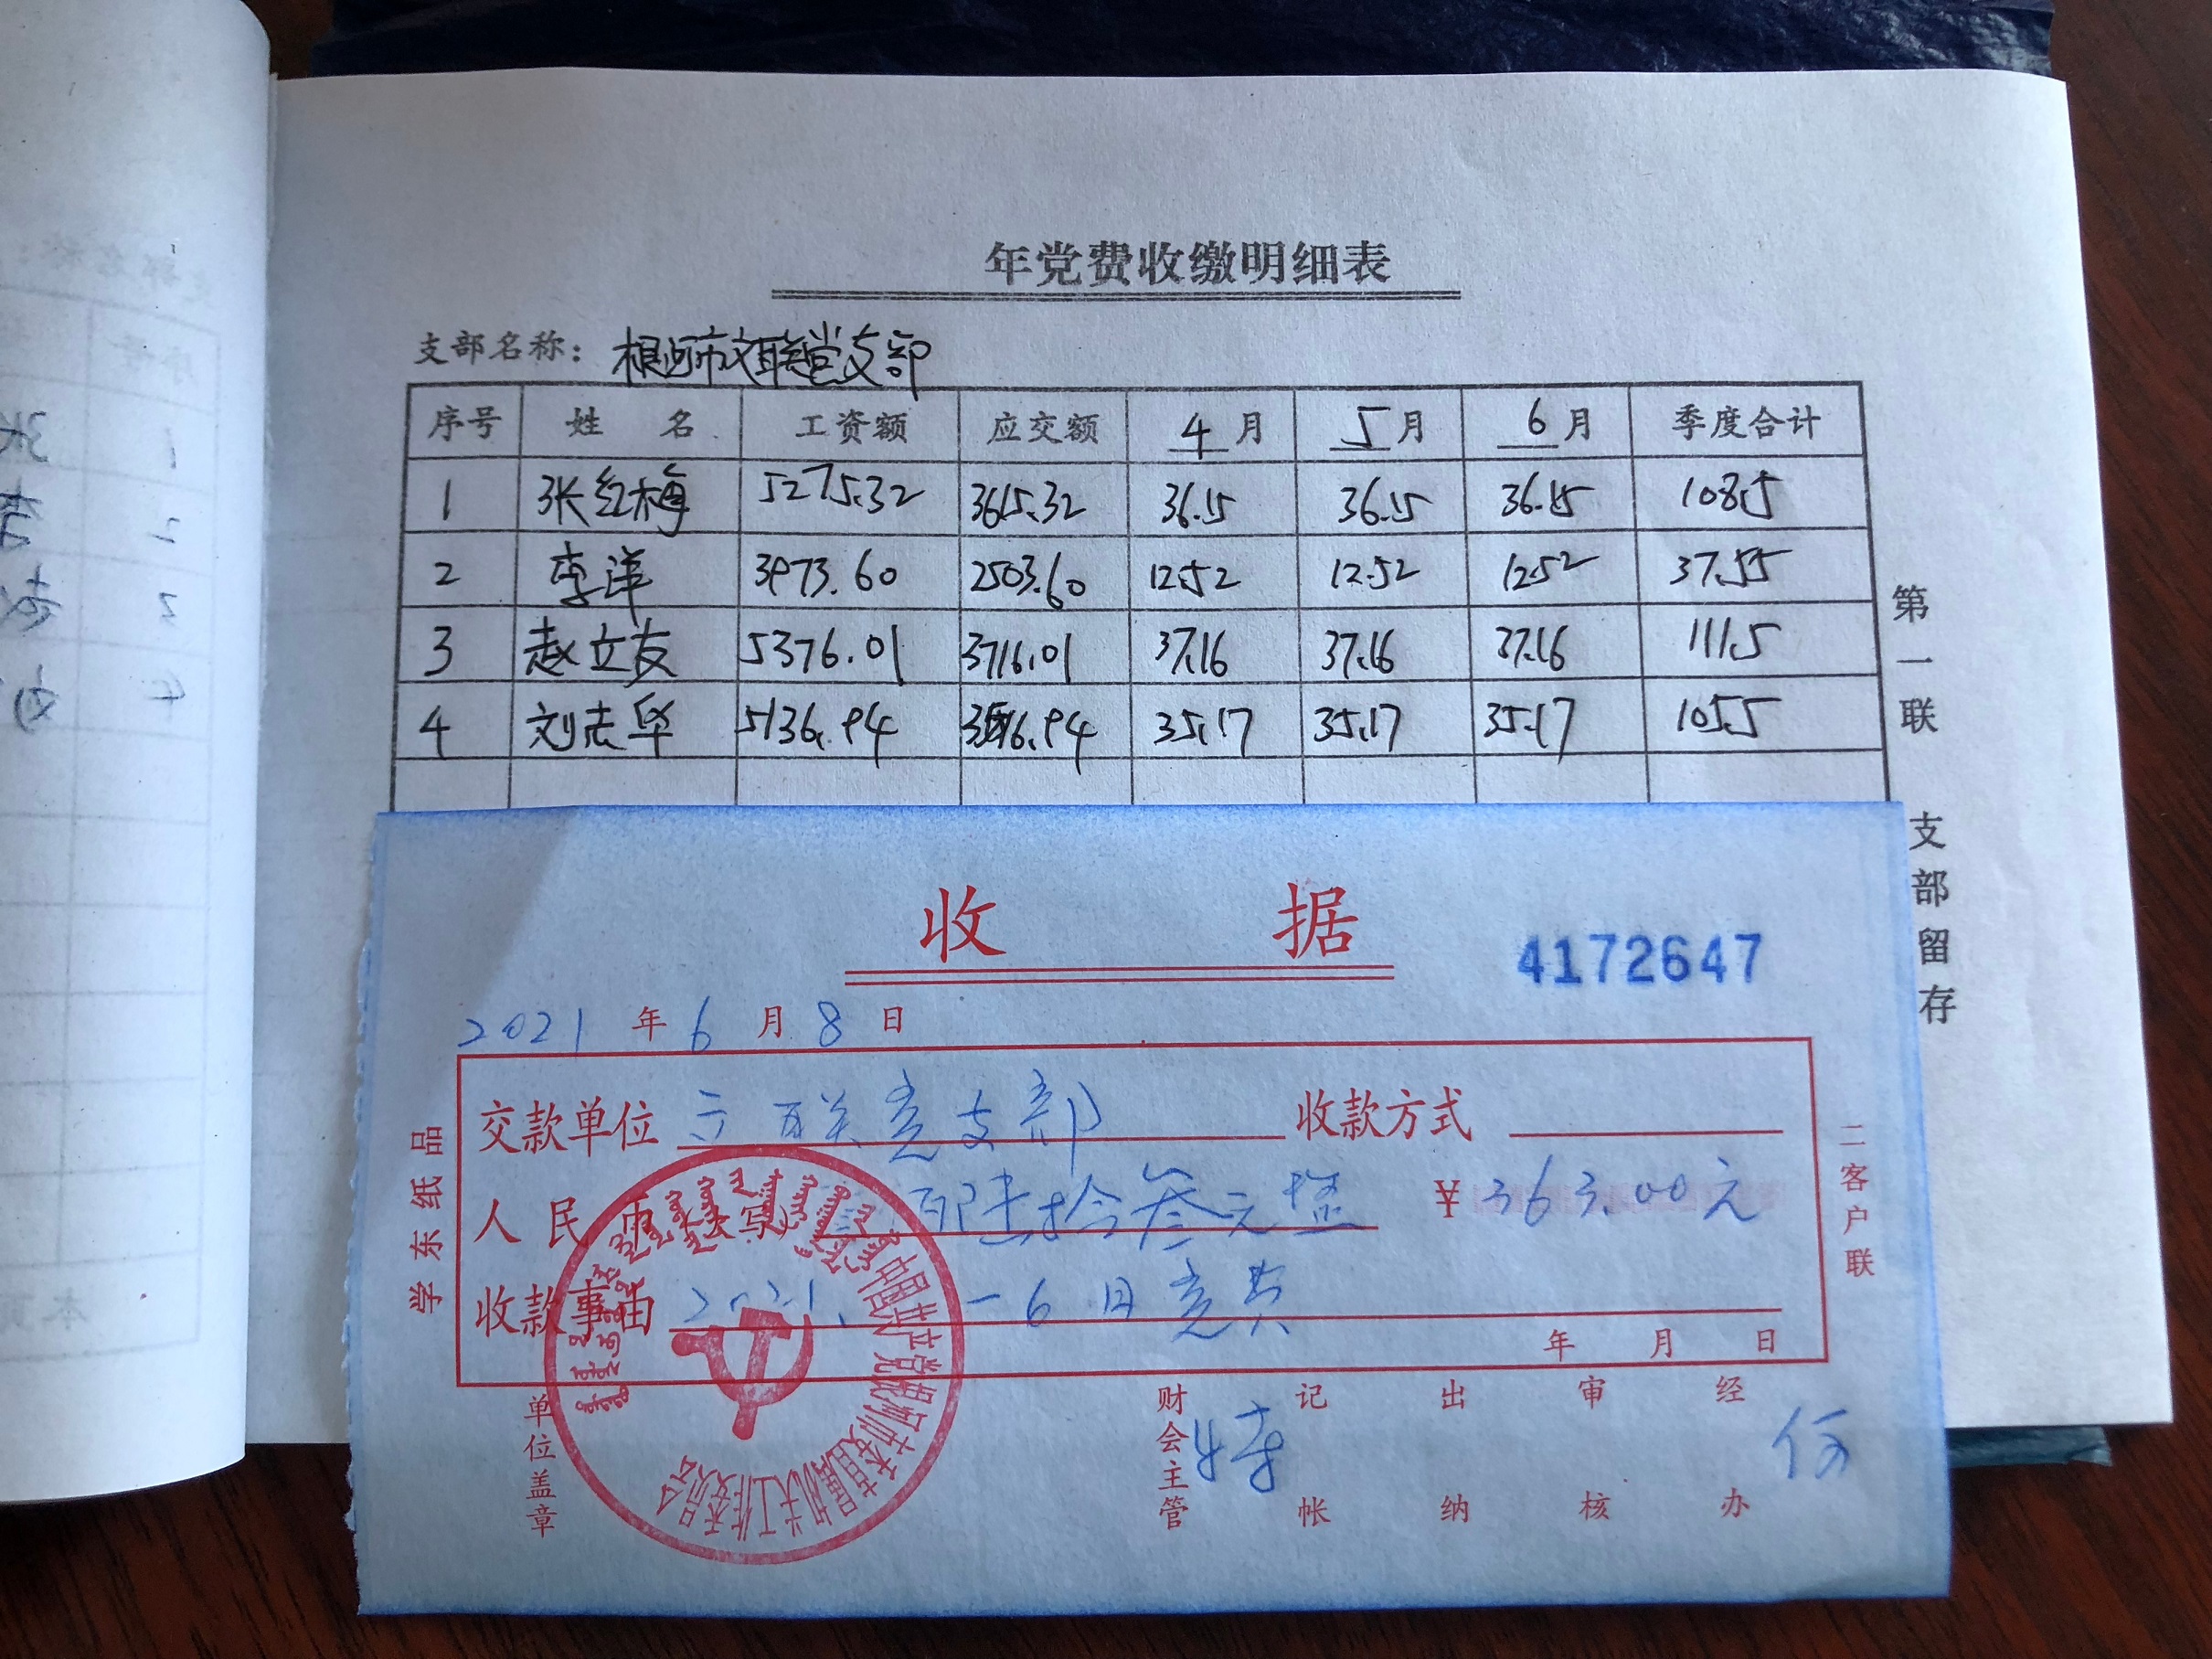 年党费收缴明细表
支部名称：根河市文联党支部
序号 姓名 工资额 应交额 4月 5月 6月 季度合计
1 张红梅 5275.32 3615.32 36.15 36.15 36.15 108.5
2 李洋 3973.60 2503.60 12.52 12.52 12.52 37.55
3 赵立友 5376.01 3716.01 37.16 37.16 37.16 111.5
4 刘志华 5136.94 35.17 35.17 35.17 105.5
第一联 支部留存
收据
4172647
2021年6月8日
交款单位 文联党支部 收款方式
人民币 佰陆拾叁元整 ¥363.00元
收款事由 2021. -6月党费
年 月 日
财会主管 记帐 出纳 审核 经办 何
单位盖章
学东纸品
二客户联
中国共产党根河市委直属机关工作委员会